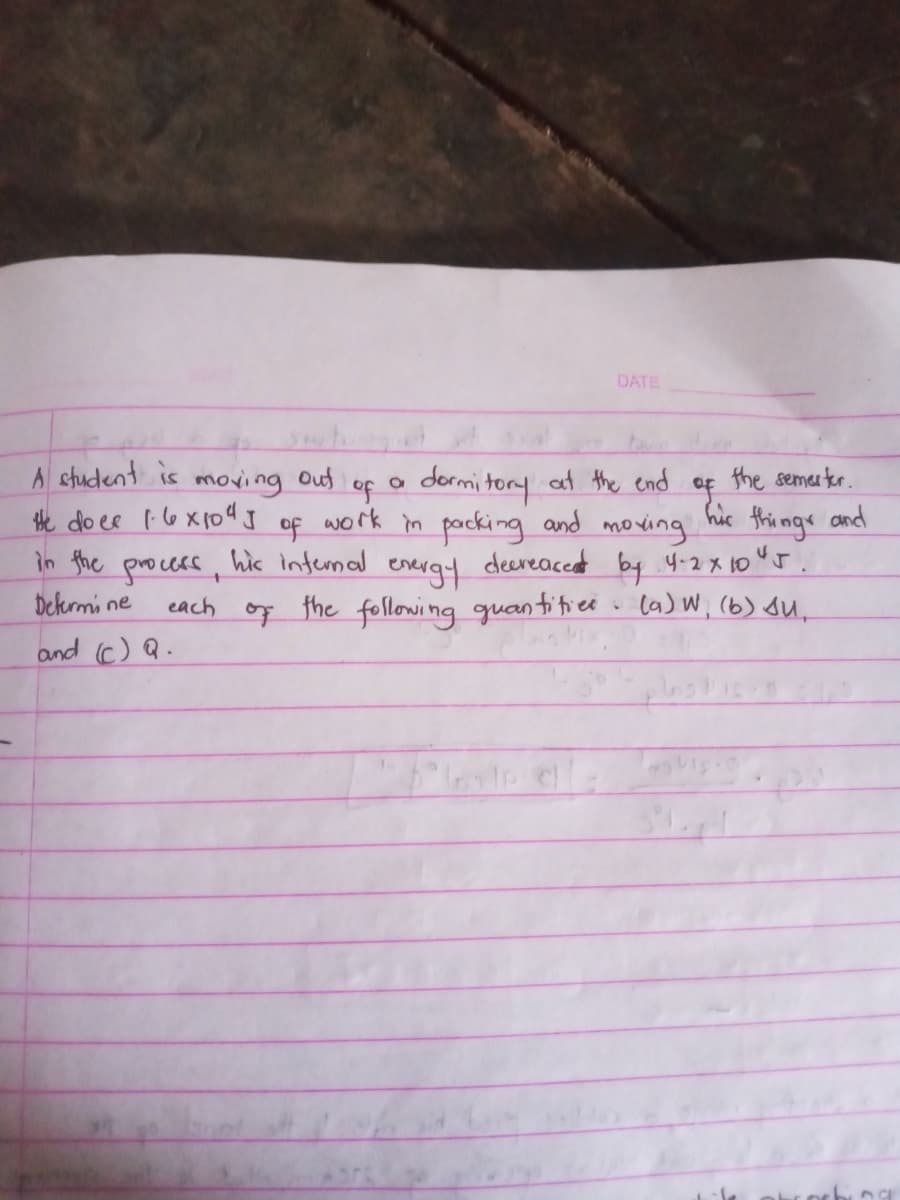 DATE
A student is moving out of a dormitory at the end of the semester.
He does 1.6 x 10⁴ J of work in packing and moving his things and
in the process, his internal energy decreased by 4.2 x 10⁴ J.
Determine each of the following quantities. (a) W, (b) ΔU,
and (c) Q.